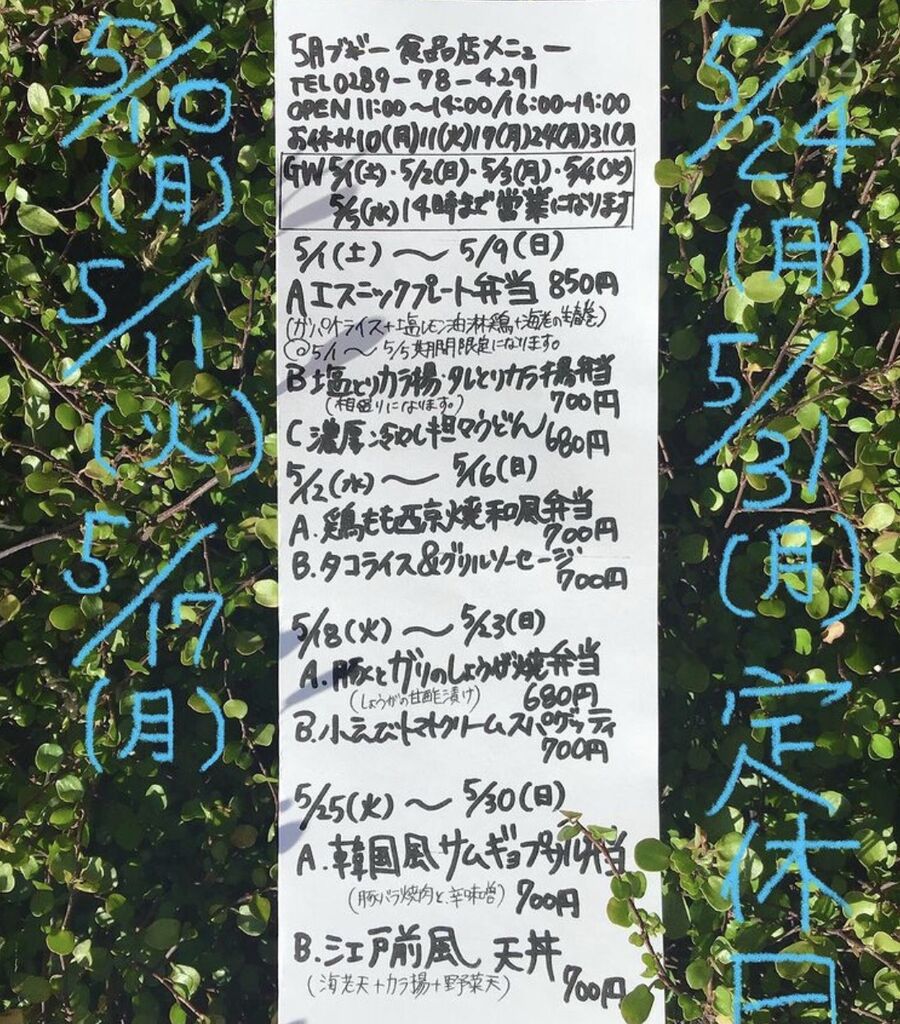 5月ブギー食品店メニュー
TEL0289-78-4291
OPEN11:00〜14:00/16:00〜19:00
お休み10(月)11(火)19(月)24(月)31(月
GW 5/1(土)・5/2(日)・5/3(月)・5/4(火)
5/5(水)14時まで営業になります
5/1(土)〜5/9(日)
Aエスニックプレート弁当 850円
(ガパオライス+塩レモン油淋鶏+海老の生春巻)
◎5/1〜5/5期間限定になります。
B塩とりカラ揚・タレとりカラ揚弁当
(相盛りになります。) 700円
C濃厚冷やし担々うどん680円
5/12(水)〜5/16(日)
A.鶏もも西京焼和風弁当
700円
B.タコライス&グリルソーセージ
700円
5/18(火)〜5/23(日)
A.豚とガリのしょうが焼弁当
(しょうがの甘酢漬け) 680円
B.小えびトマトクリームスパゲッティ
700円
5/25(火)〜5/30(日)
A.韓国風サムギョプサル弁当
(豚バラ焼肉と辛味噌) 700円
B.江戸前風 天丼
(海老天+カラ揚+野菜天) 700円
5/10
(月)
5/11
(火)
5/17
(月)
5/24
(月)
5/31
(月)
定休日